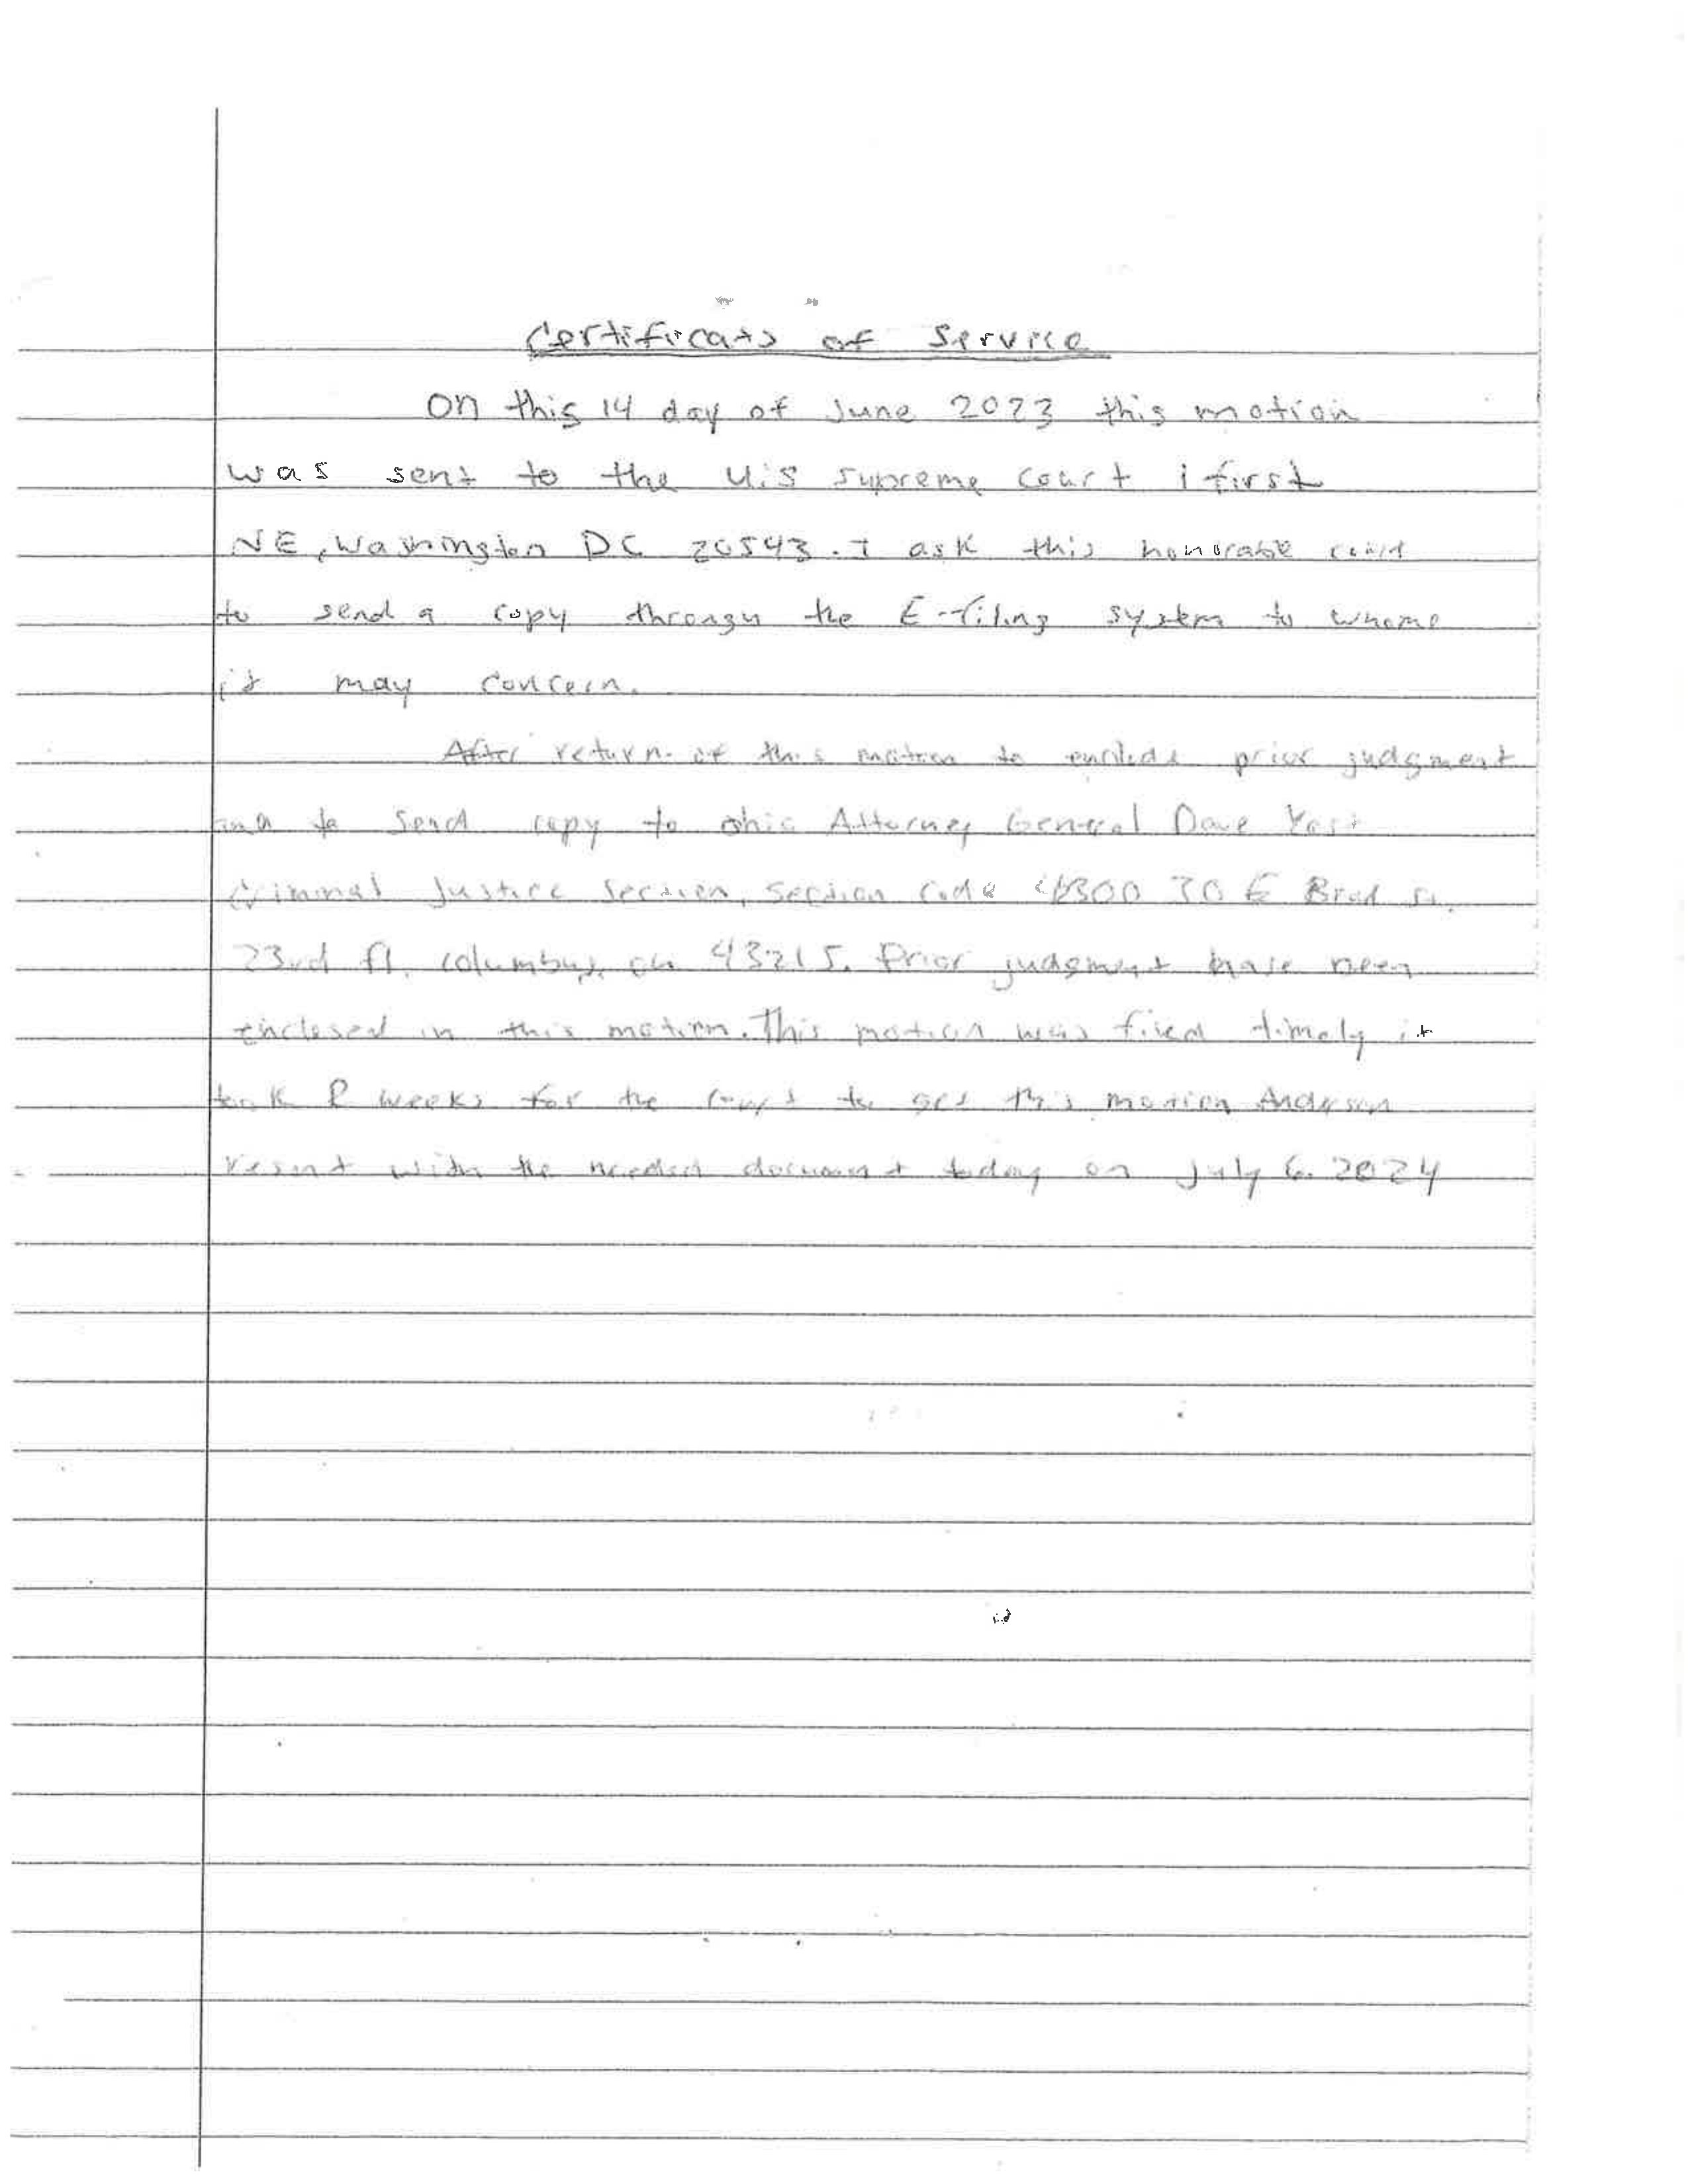 Certificate of Service
On this 14 day of June 2023 this motion
was sent to the U.S Supreme Court 1 first
NE, Washington DC 20543. I ask this honorable court
to send a copy through the E-filing system to whome
it may concern.
After return of this motion to enclude prior judgment
and to send copy to Ohio Attorney General Dave Yost
Criminal Justice Section, Section Code 30 E Brod St.
23rd fl. columbus, oh 43215. Prior judgment have been
enclosed in this motion. This motion was filed timely it
took weeks for the court to get this motion Anderson
resent with the needed document today on July 6. 2024